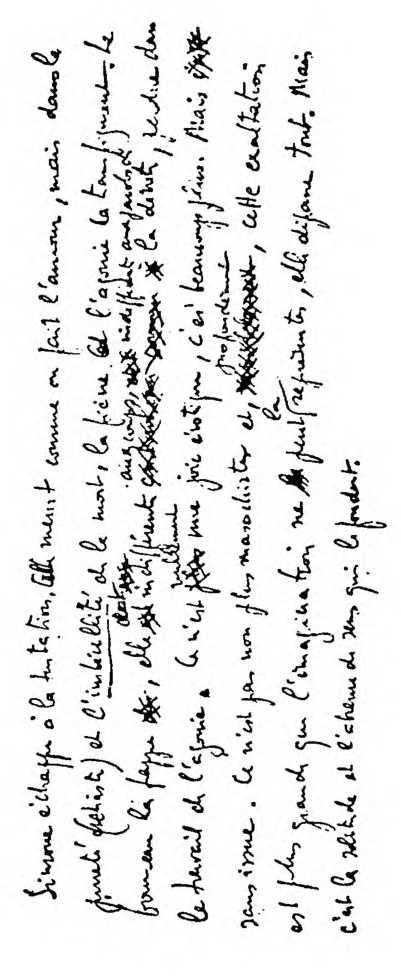 Simone échappe à la tentation, elle meurt comme on fait l'amour, mais dans la
pureté (chaste) et l'imbécillité de la mort, la fièvre et l'agonie la transfigurent. Le
bourreau la frappe, elle est indifférente aux coups, indifférente aux paroles de la dévote, perdue dans
le travail de l'agonie. Ce n'est nullement une joie érotique, c'est beaucoup plus. Mais
sans issue. Ce n'est pas non plus masochiste et, profondément, cette exaltation
est plus grande que l'imagination ne peut la représenter, elle dépasse tout. Mais
c'est la solitude et l'absence de sens qui la fondent.